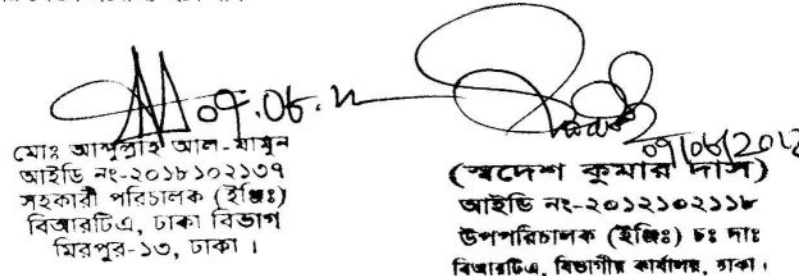 ০৭.০৮.
মোঃ আব্দুল্লাহ আল-মামুন
আইডি নং-২০১৮১০২১৩৭
সহকারী পরিচালক (ইঞ্জিঃ)
বিআরটিএ, ঢাকা বিভাগ
মিরপুর-১৩, ঢাকা ।
(স্বদেশ কুমার দাস)
আইডি নং-২০১২১০২১১৮
উপপরিচালক (ইঞ্জিঃ) চঃ দাঃ
বিআরটিএ, বিভাগীয় কার্যালয়, ঢাকা ।